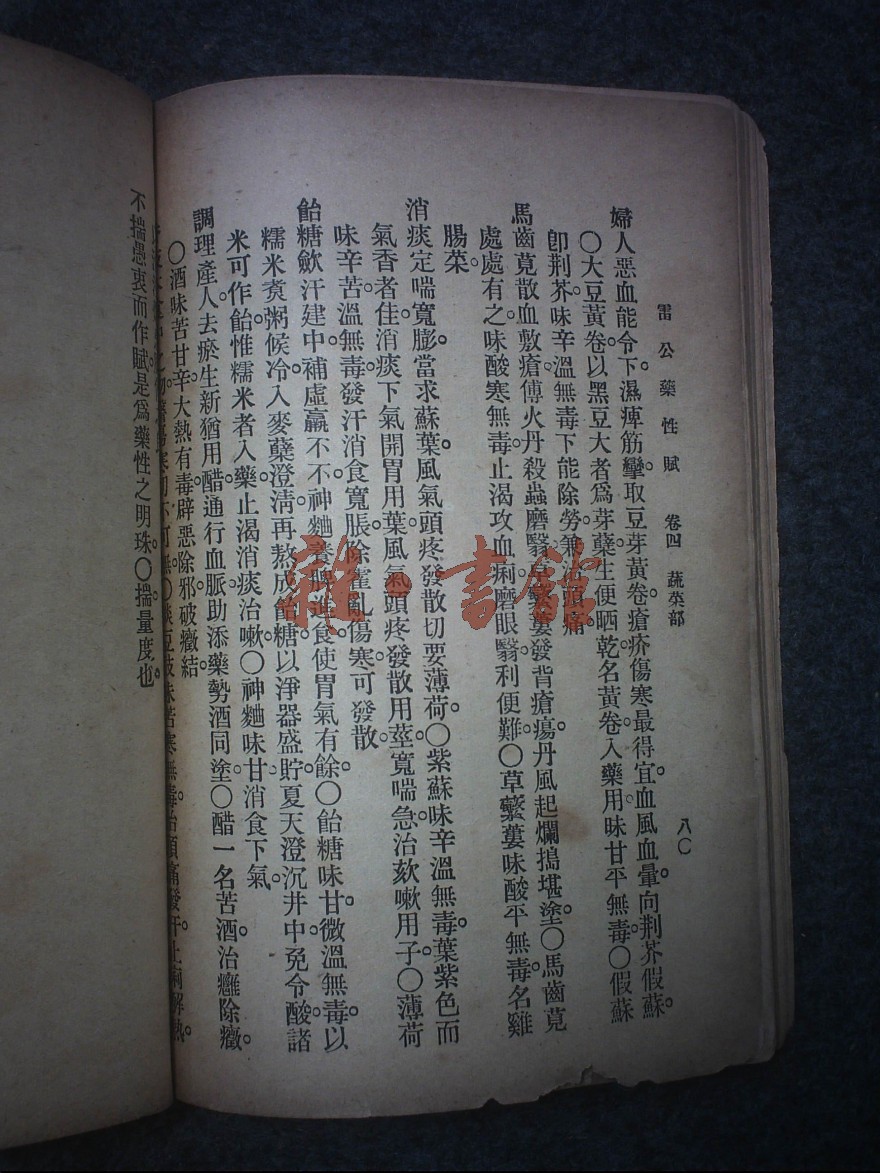 雷公藥性賦　卷四　蔬菜部　八〇
婦人惡血能令下。濕痺筋攣取豆芽黃卷。瘡疥傷寒最得宜。血風血暈。向荆芥假蘇。
〇大豆黃卷以黑豆大者爲芽糵生便晒乾名黃卷。入藥用味甘平無毒。〇假蘇
卽荆芥味辛溫無毒下能除勞。兼治頭痛。
馬齒莧散血敷瘡。傅火丹殺蟲磨翳。是蘩蔞發背瘡瘍。丹風起爛搗堪塗。〇馬齒莧
處處有之味酸寒無毒。止渴攻血痢。磨眼翳。利便難。〇草蘩蔞味酸平無毒。名雞
腸菜。
消痰定喘寬膨。當求蘇葉。風氣頭疼發散切要薄荷。〇紫蘇味辛溫無毒。葉紫色而
氣香者佳。消痰下氣開胃用葉。風氣頭疼發散用莖。寬喘急治欬嗽用子。〇薄荷
味辛苦溫無毒。發汗消食寬脹。除霍亂傷寒可發散。
飴糖歛汗建中補虛羸不不。神麯養脾進食使胃氣有餘。〇飴糖味甘微溫無毒。以
糯米煑粥候冷入麥糵。澄淸再熬成飴糖。以淨器盛貯夏天澄沉井中。免令酸。諸
米可作飴。惟糯米者入藥。止渴消痰治嗽。〇神麯味甘消食下氣。
調理產人去瘀生新猶用醋。通行血脈助添藥勢酒同塗。〇醋一名苦酒。治癰除癥。
〇酒味苦甘辛大熱有毒。辟惡除邪破癥結。
切不可無。〇淡豆豉味苦寒無毒。治頭痛發汗止痢解熱。
不揣愚衷而作賦。是爲藥性之明珠。〇揣量度也。
雜·書館